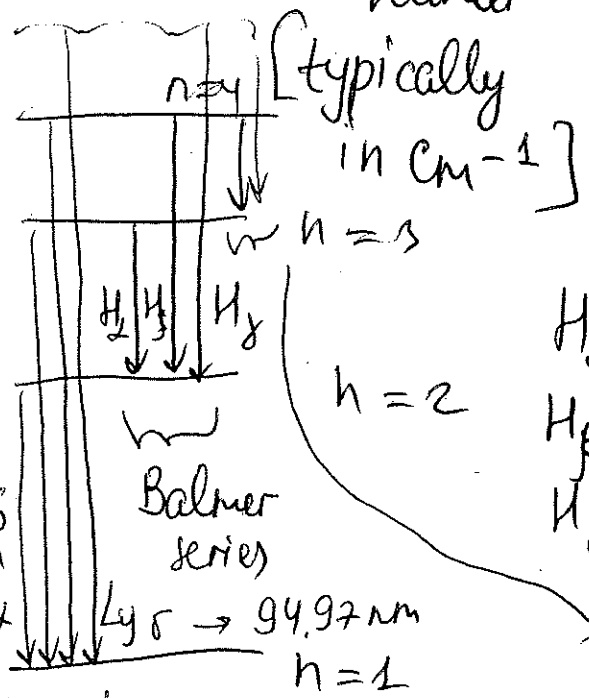 n=4 [typically
in cm-1]
n = 3
Hα Hβ Hγ
n = 2
Hβ
Balmer
series
Lyδ → 94.97 nm
n = 1